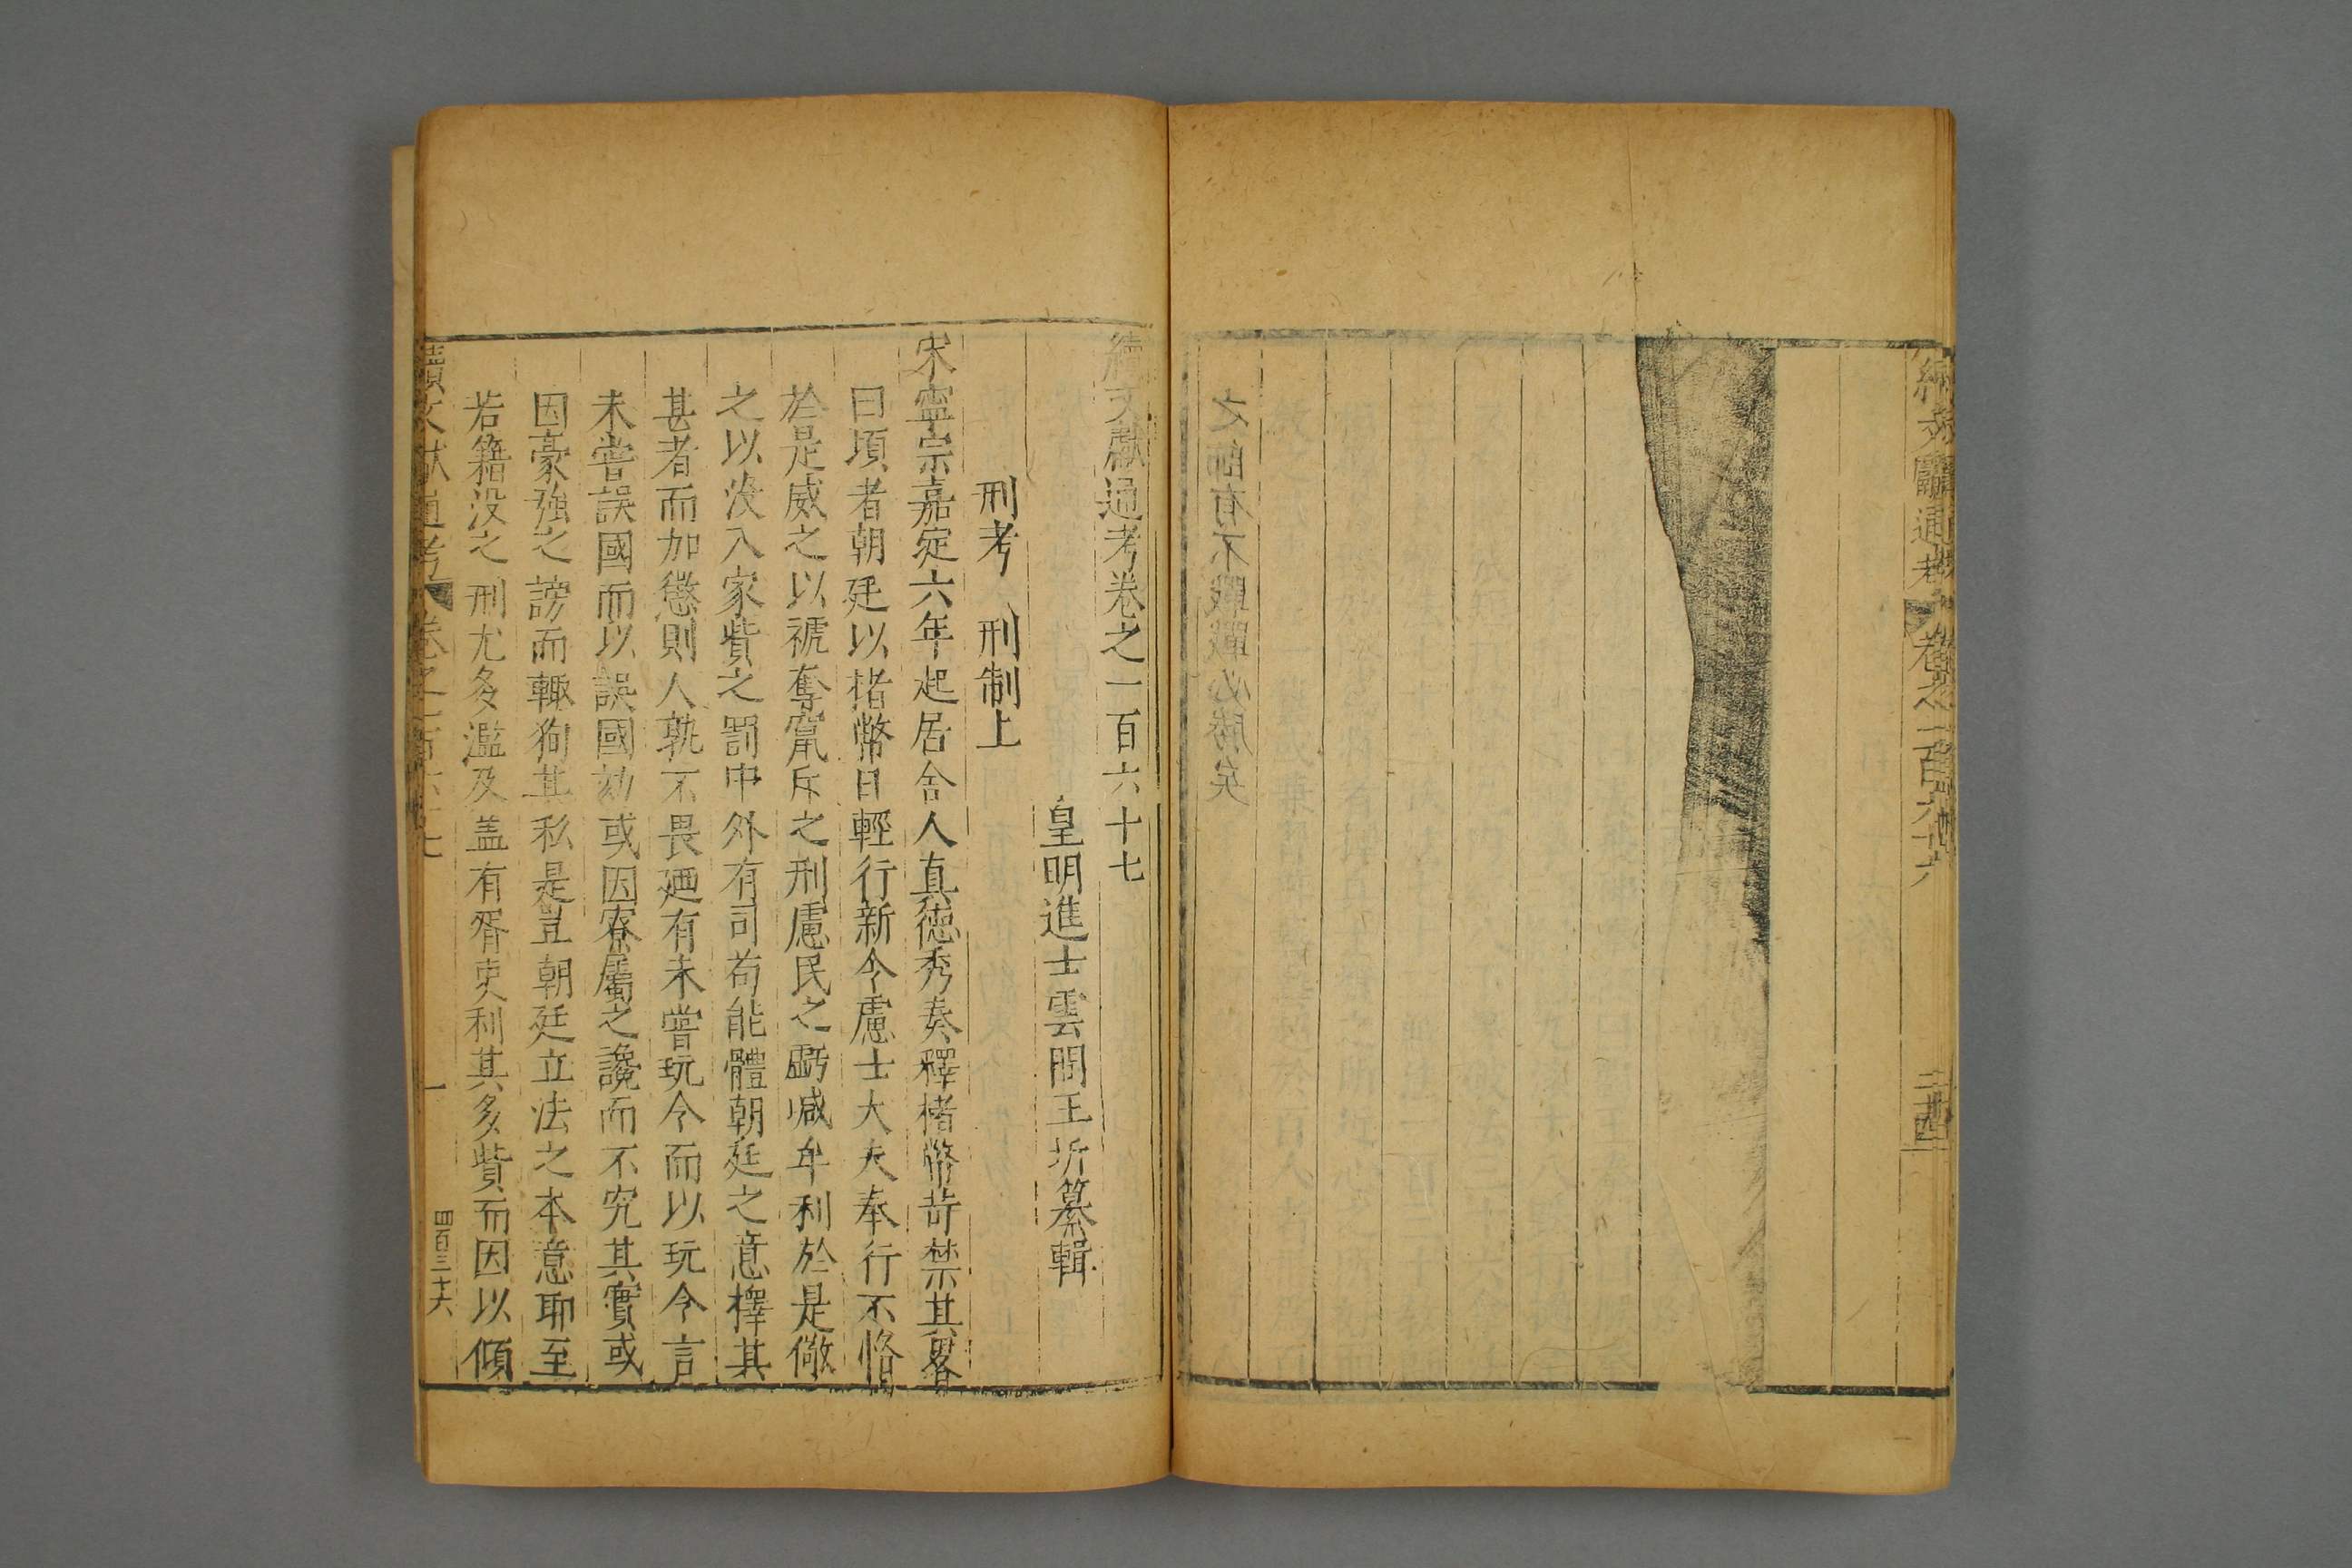 續文獻通考卷之一百六十七
皇明進士雲間王圻纂輯
刑考 刑制上
宋寧宗嘉定六年起居舍人真德秀奏釋楮幣苛禁其畧
曰頃者朝廷以楮幣日輕行新令慮士大夫奉行不恪
於是威之以褫奪竄斥之刑慮民之虧減牟利於是儆
之以沒入家貲之罰中外有司苟能體朝廷之意擇其
甚者而加懲則人孰不畏廼有未嘗玩令而以玩令言
未嘗誤國而以誤國劾或因寮屬之讒而不究其實或
因豪強之謗而輙狥其私是豈朝廷立法之本意耶至
若籍没之刑尤多濫及盖有胥吏利其多貲而因以傾
續文獻通考 卷之一百六十七 一 四百三十六